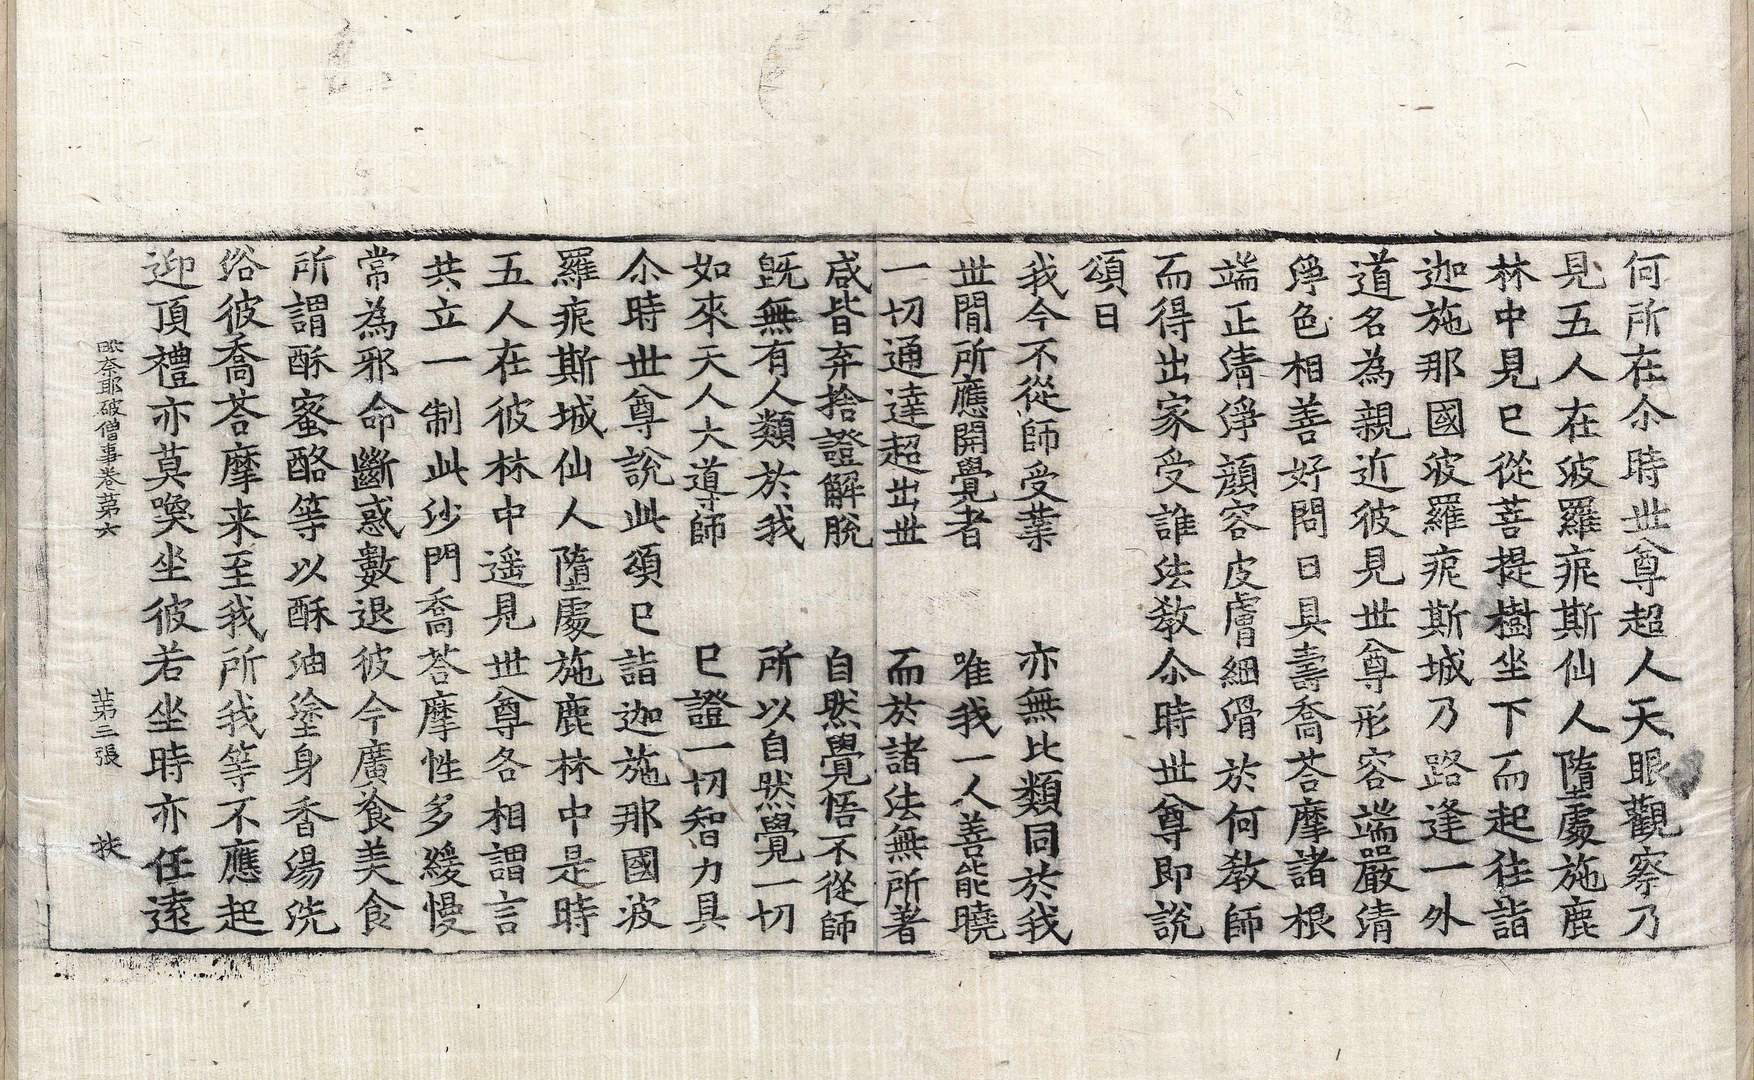 何所在尒時世尊超人天眼觀察乃
見五人在波羅痆斯仙人墮處施鹿
林中見已從菩提樹坐下而起往詣
迦施那國波羅痆斯城乃路逢一外
道名為親近彼見世尊形容端嚴清
淨色相善好問曰具壽喬荅摩諸根
端正清淨顔容皮膚細滑於何教師
而得出家受誰法教尒時世尊即說
頌曰
我今不從師受業　亦無比類同於我
世間所應開覺者　唯我一人善能曉
一切通達超出世　而於諸法無所著
咸皆弃捨證解脫　自然覺悟不從師
旣無有人類於我　所以自然覺一切
如來天人大道師　已證一切智力具
尒時世尊說此頌已詣迦施那國波
羅痆斯城仙人墮處施鹿林中是時
五人在彼林中遥見世尊各相謂言
共立一制此沙門喬荅摩性多緩慢
常為邪命斷惑數退彼今廣飡美食
所謂酥蜜酪等以酥油塗身香湯洗
浴彼喬荅摩来至我所我等不應起
迎頂禮亦莫喚坐彼若坐時亦任遠
毗奈耶破僧事卷苐六　苐三張　扶